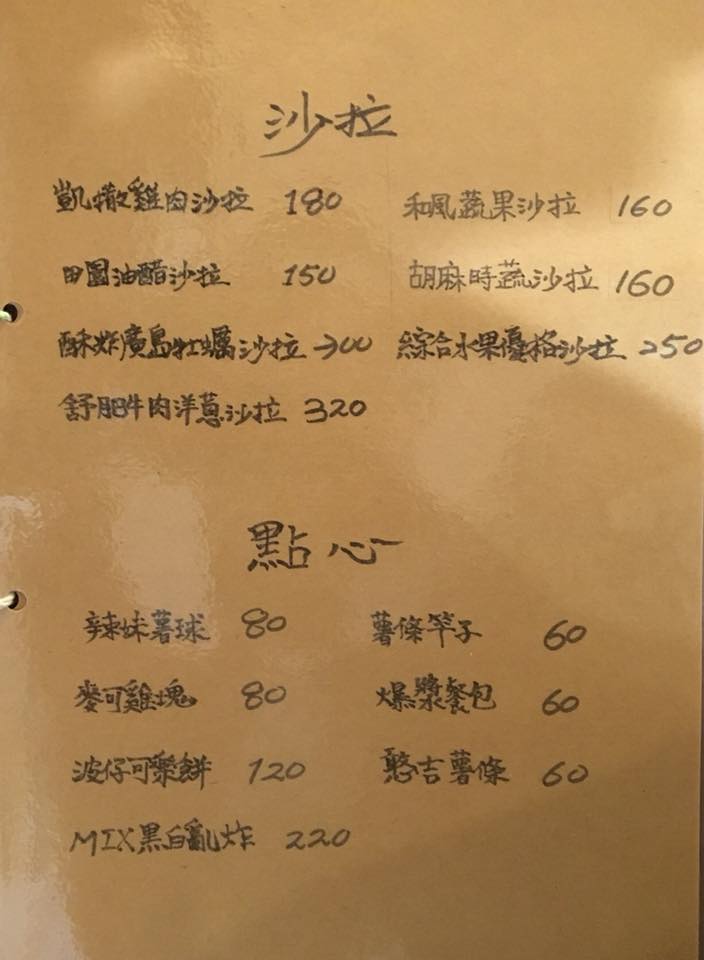 沙拉
凱撒雞肉沙拉 180 和風蔬果沙拉 160
田園油醋沙拉 150 胡麻時蔬沙拉 160
酥炸廣島牡蠣沙拉 300 綜合水果優格沙拉 250
舒肥牛肉洋蔥沙拉 320
點心
辣妹薯球 80 薯條竿子 60
麥可雞塊 80 爆漿餐包 60
波仔可樂餅 120 憨吉薯條 60
MIX黑白亂炸 220